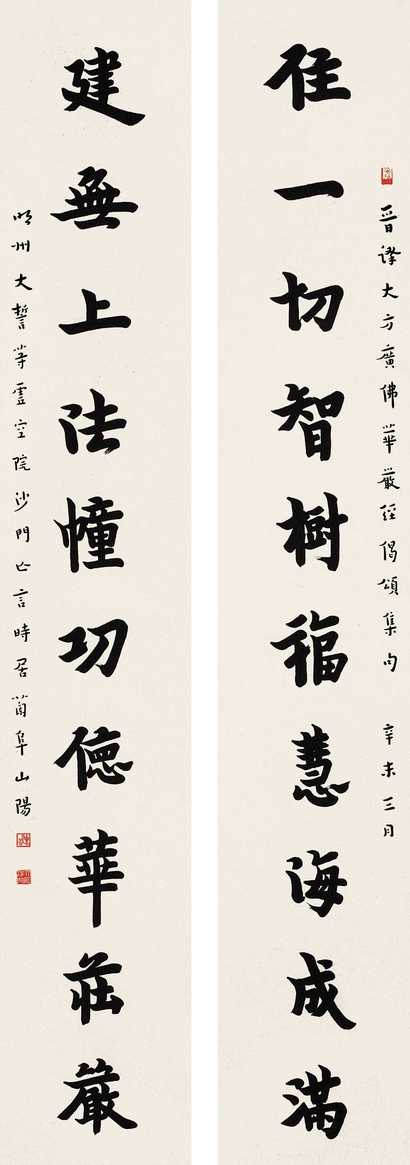 晉譯大方廣佛華嚴經偈頌集句 辛未三月
住一切智樹福慧海成滿
建無上法幢功德華莊嚴
明州大誓莊嚴院沙門亡言時居蕳阜山陽